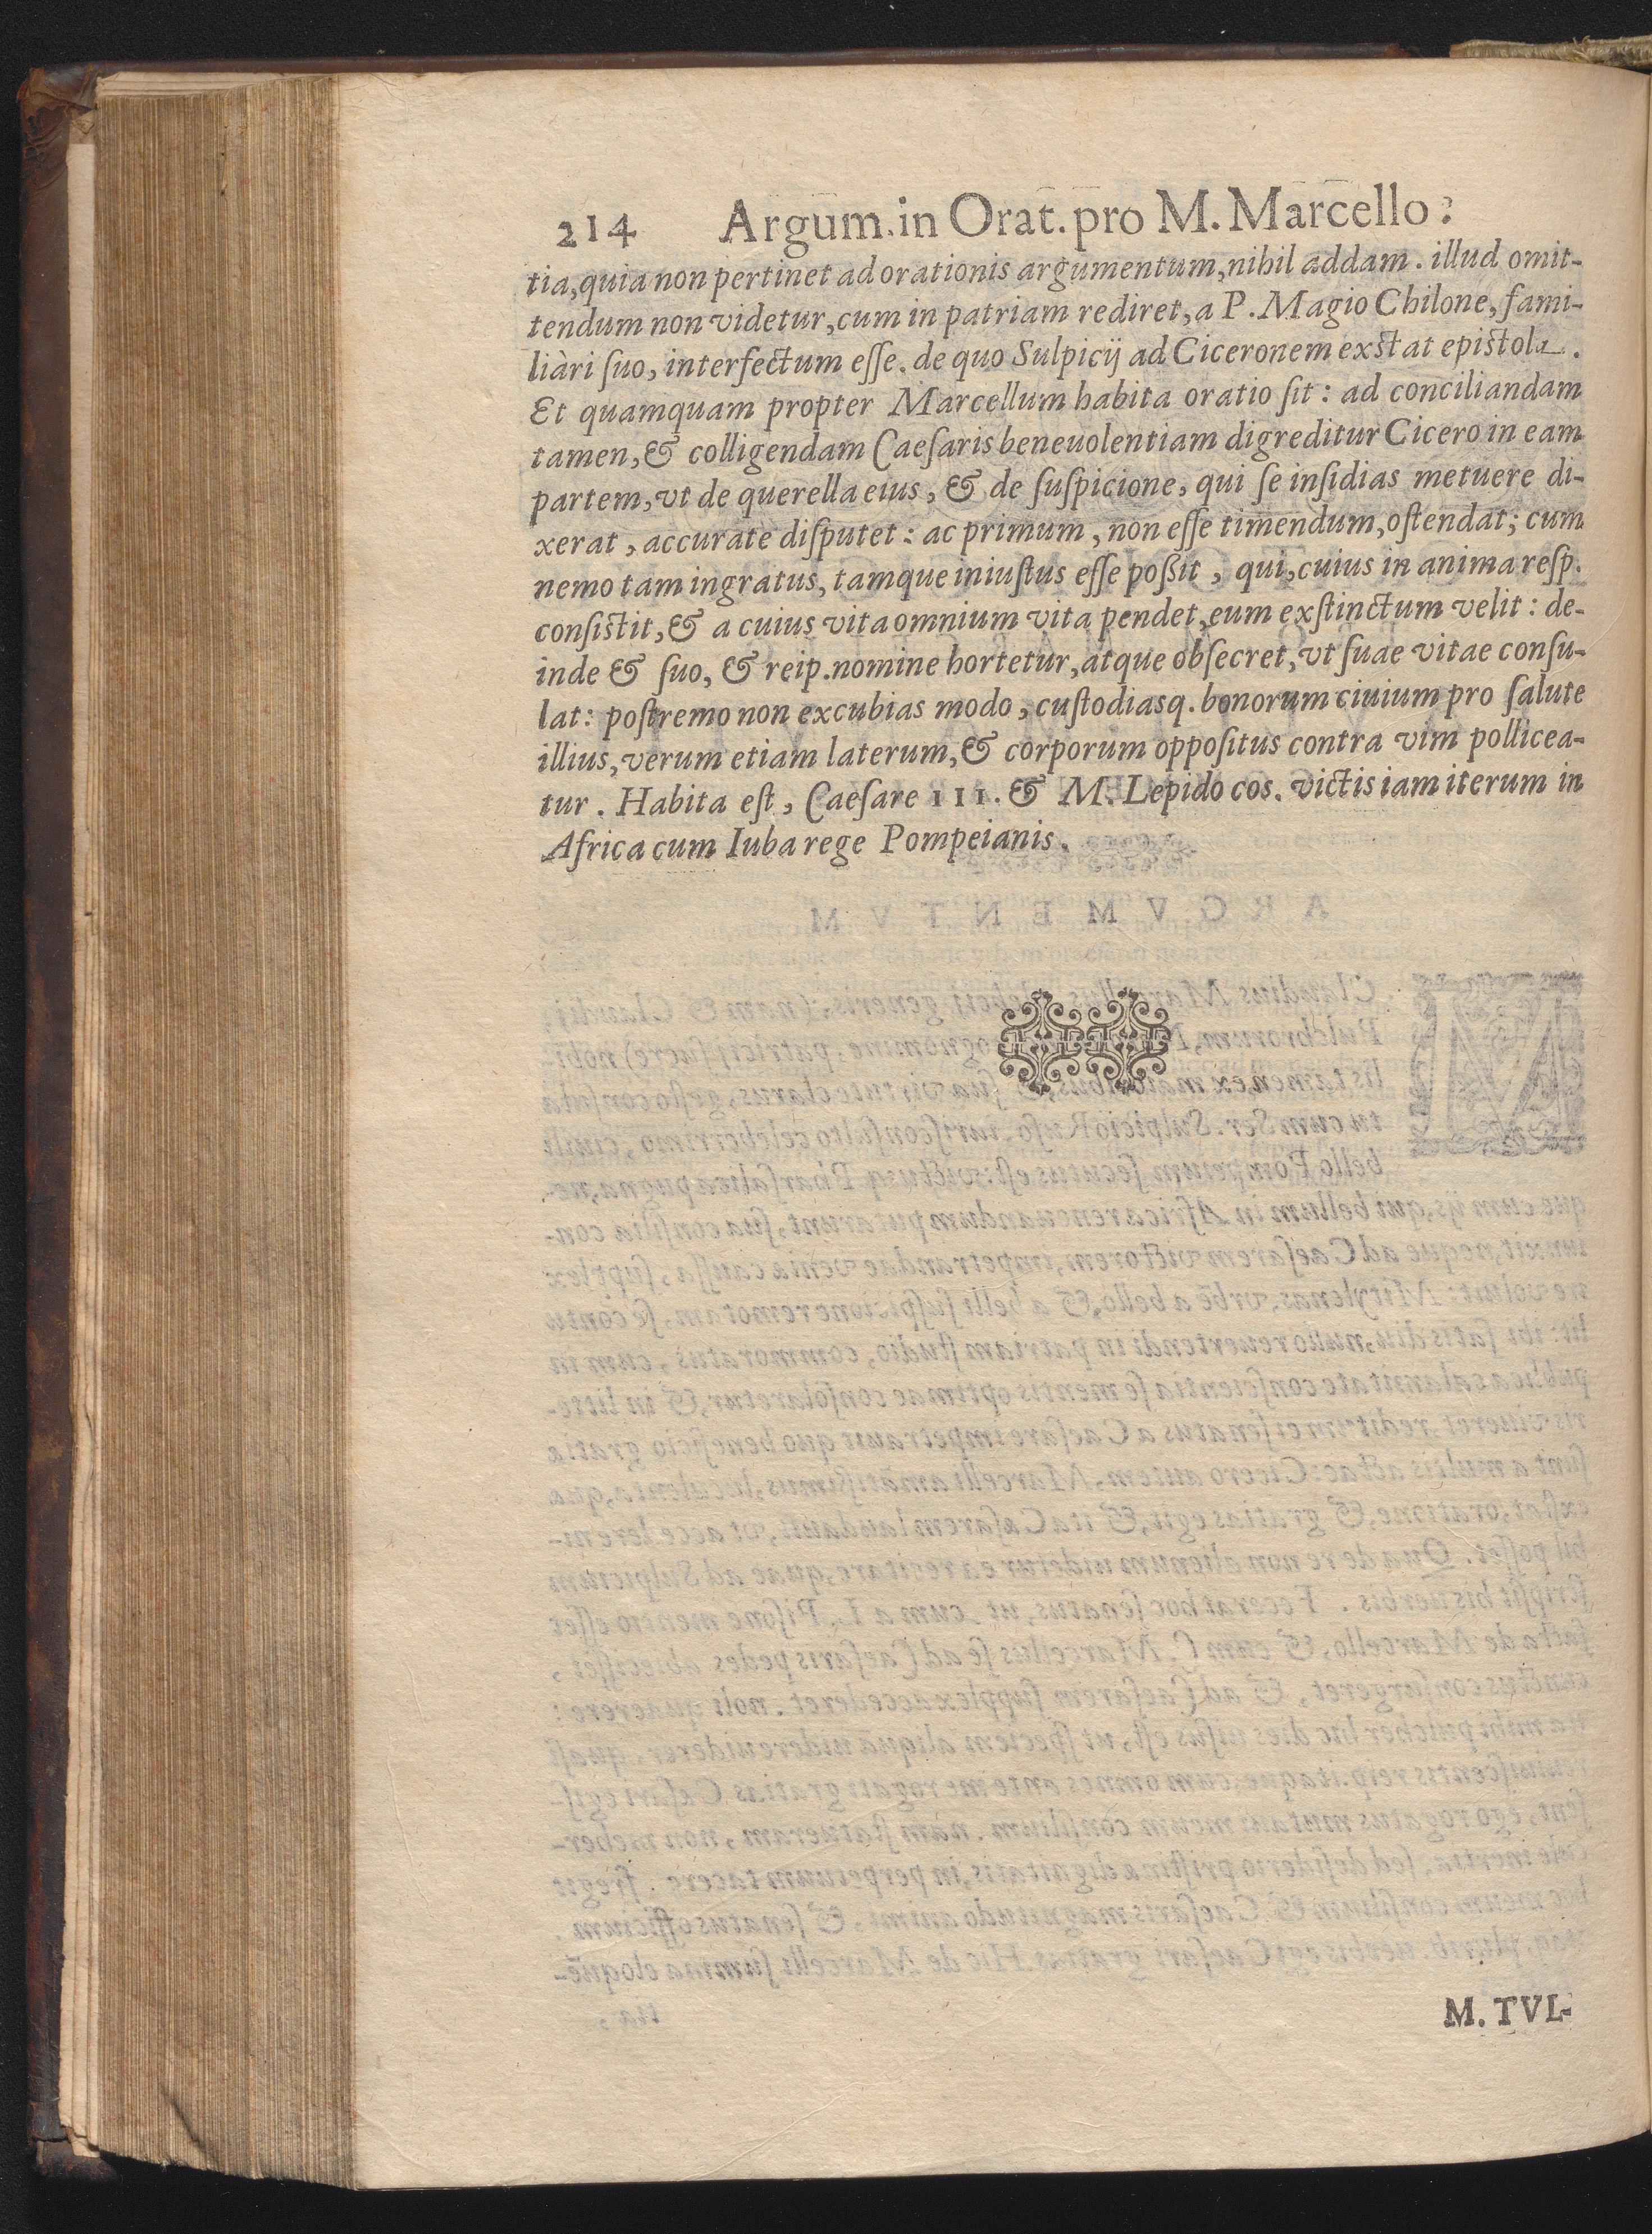 214 Argum. in Orat. pro M. Marcello.
tia, quia non pertinet ad orationis argumentum, nihil addam. illud omit-
tendum non videtur, cum in patriam rediret, a P. Magio Chilone, fami-
liàri ſuo, interfectum eſſe. de quo Sulpicij ad Ciceronem exſtat epiſtola.
Et quamquam propter Marcellum habita oratio ſit: ad conciliandam
tamen, & colligendam Caeſaris beneuolentiam digreditur Cicero in eam
partem, vt de querella eius, & de ſuſpicione, qui ſe inſidias metuere di-
xerat, accurate diſputet: ac primum, non eſſe timendum, oſtendat; cum
nemo tam ingratus, tamque iniuſtus eſſe poßit, qui, cuius in anima reſp.
conſiſtit, & a cuius vita omnium vita pendet, eum exſtinctum velit: de-
inde & ſuo, & reip. nomine hortetur, atque obſecret, vt ſuae vitae conſu-
lat: poſtremo non excubias modo, cuſtodiasq. bonorum ciuium pro ſalute
illius, verum etiam laterum, & corporum oppoſitus contra vim pollicea-
tur. Habita eſt, Caeſare III. & M. Lepido cos. victis iam iterum in
Africa cum Iuba rege Pompeianis.
M. TVL-